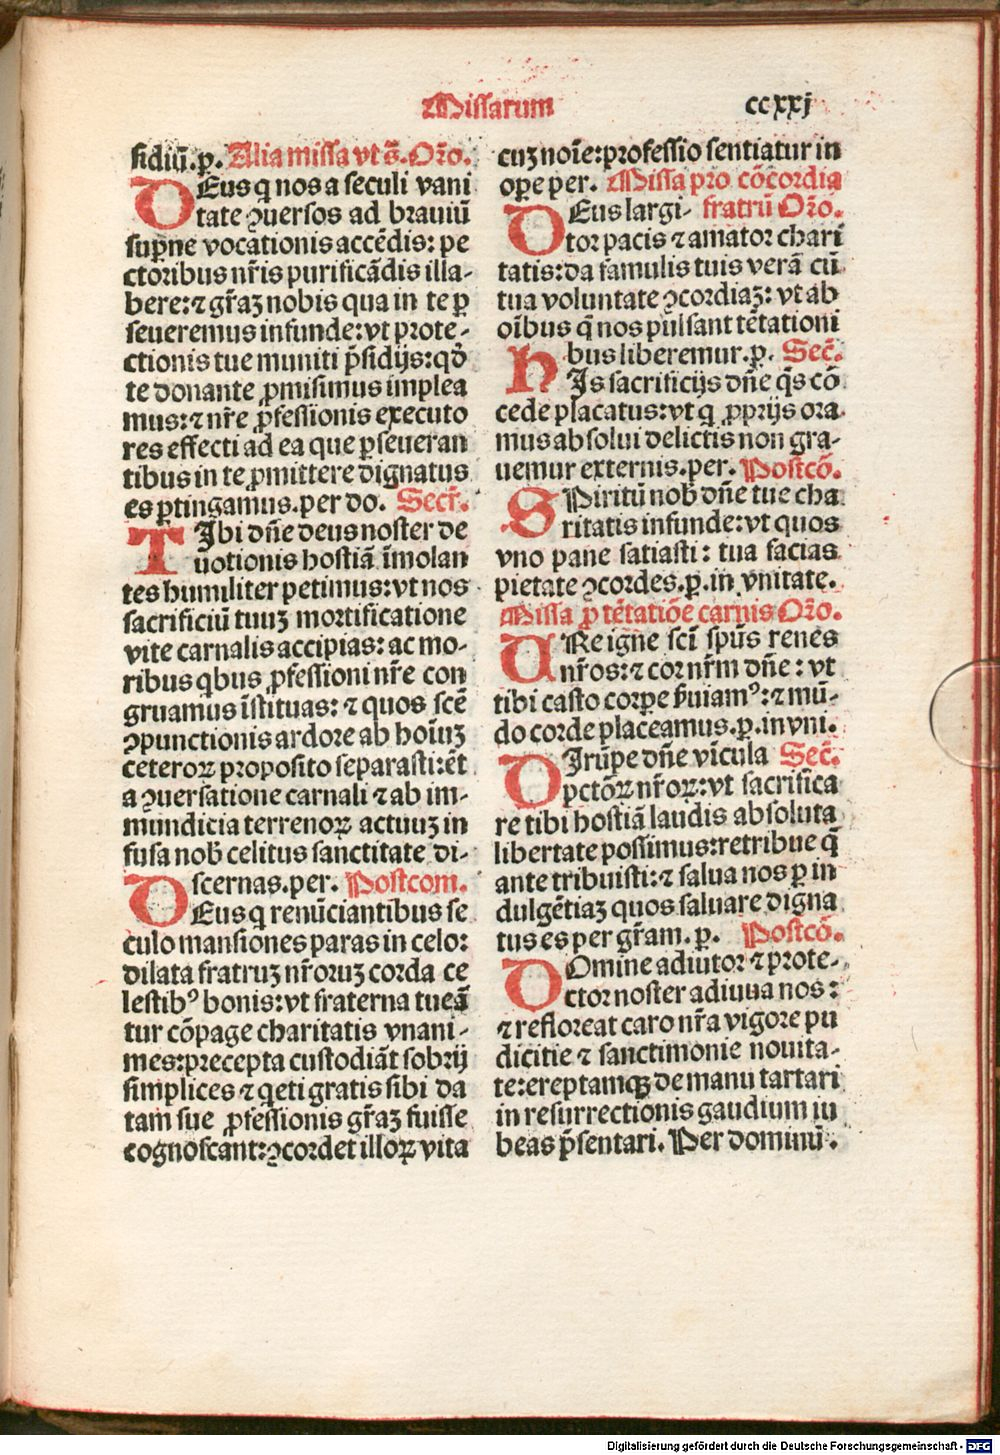 Missarum
ccxxj
sidiū.ꝑ. Alia missa vt s̄. Or̄o.
DEus q nos a seculi vani
tate ꝯuersos ad brauiū
suꝑne vocationis accēdis: pe
ctoribus nr̄is purificādis illa-
bere: ⁊ gr̄aꝫ nobis qua in te ꝑ
seueremus infunde: vt prote-
ctionis tue muniti p̄sidijs: qđ
te donante ꝓmisimus implea
mus: ⁊ nr̄e ꝓfessionis executo
res effecti ad ea que ꝑseueran
tibus in te ꝓmittere dignatus
es ꝑtingamus.per do. Secr̄.
TJbi dn̄e deus noster de
uotionis hostiā īmolan
tes humiliter petimus: vt nos
sacrificiū tuuꝫ mortificatione
vite carnalis accipias: ac mo-
ribus qbus ꝓfessioni nr̄e con
gruamus īstituas: ⁊ quos scē
ꝯpunctionis ardore ab hoīuꝫ
ceteroꝝ proposito separasti: ēt
a ꝯuersatione carnali ⁊ ab im-
mundicia terrenoꝝ actuuꝫ in
fusa nob̄ celitus sanctitate di-
scernas.per. Postcom.
DEus q renūciantibus se
culo mansiones paras in celo:
dilata fratruꝫ nr̄oruꝫ corda ce
lestibꝰ bonis: vt fraterna tueā
tur cōpage charitatis vnani-
mes: precepta custodiāt sobrij
simplices ⁊ qeti gratis sibi da
tam sue ꝓfessionis gr̄aꝫ fuisse
cognoscant: ꝯcordet illoꝝ vita
cuꝫ noīe: professio sentiatur in
oꝑe per. Missa pro cōcordia
DEus largi- fratrū Or̄o.
tor pacis ⁊ amator chari
tatis: da famulis tuis verā cū
tua voluntate ꝯcordiaꝫ: vt ab
oībus q̄ nos pulsant tētationi
bus liberemur.ꝑ. Sec̄.
HJs sacrificijs dn̄e q̄s cō
cede placatus: vt q ꝓprijs ora
mus absolui delictis non gra-
uemur externis.per. Postcō.
SPiritū nob̄ dn̄e tue cha
ritatis infunde: vt quos
vno pane satiasti: tua facias
pietate ꝯcordes.ꝑ.in vnitate.
Missa ꝓ tētatiōe carnis Or̄o.
URe igne scī spūs renes
nr̄os: ⁊ cor nr̄m dn̄e: vt
tibi casto corꝑe ẜuiamꝰ: ⁊ mū-
do corde placeamus.ꝑ.in vni.
DJrūpe dn̄e vīcula Sec̄.
pctōꝝ nr̄oꝝ: vt sacrifica
re tibi hostiā laudis absoluta
libertate possimus: retribue q̄
ante tribuisti: ⁊ salua nos ꝑ in
dulgētiaꝫ quos saluare digna
tus es per gr̄am.ꝑ. Postcō.
DOmine adiutor ⁊ prote-
ctor noster adiuua nos:
⁊ refloreat caro nr̄a vigore pu
dicitie ⁊ sanctimonie nouita-
te: ereptamqꝫ de manu tartari
in resurrectionis gaudium iu
beas p̄sentari. Per dominū.
Digitalisierung gefördert durch die Deutsche Forschungsgemeinschaft - DFG